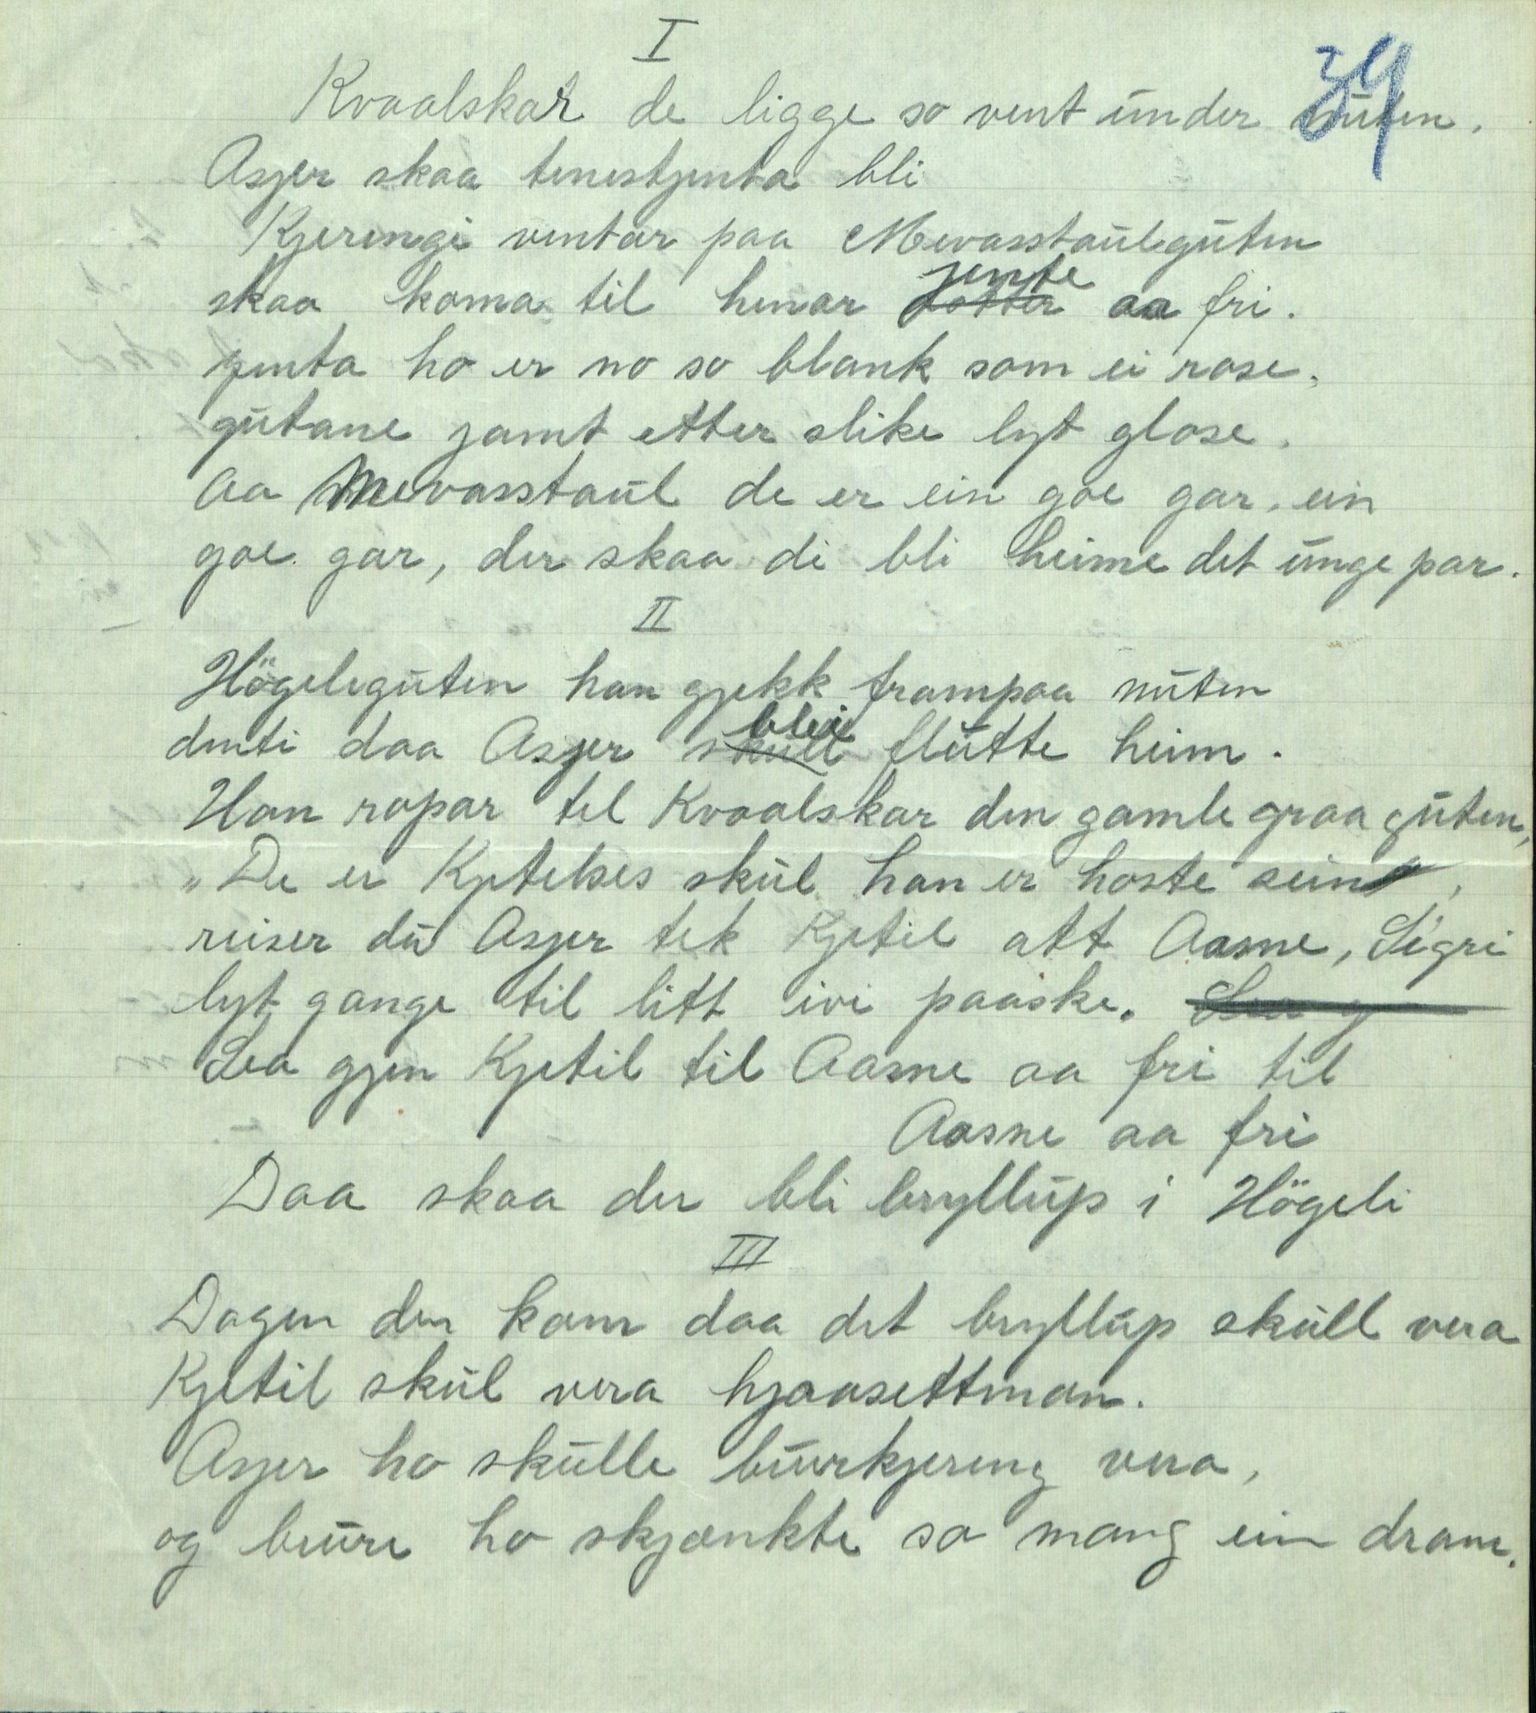 I
39
Kvaalskar de ligge so vent under nuten.
Asjer skaa tenestjenta bli
Kjeringi ventar paa Mevasstaulguten
skaa koma til henar jente aa fri.
jenta ho er no so blank som ei rose,
gutane jamt etter slike lyt glose.
Aa Mevasstaul de er ein goe gar, ein
goe gar, der skaa di bli heime det unge par.
II
Högeliguten han gjekk frampaa nuten
denti daa Asjer blei flutte heim.
Han ropar til Kvaalskar den gamle graa guten,
"De er Kjetelses skul han er hoste sein,
reiser du Asjer tek Kjetil att Aasne, Sigri
lyt gange til litt ivi paaske.
Lea gjen Kjetil til Aasne aa fri til
Aasne aa fri
Daa skaa der bli bryllup i Högeli
III
Dagen den kom daa det bryllup skull vera
Kjetil skul vera hjaasettman.
Asjer ho skulle buurkjering vera,
og buure ho skjenkte so mang ein dram.